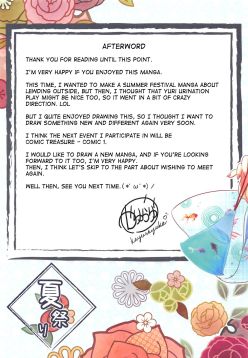 AFTERWORD
THANK YOU FOR READING UNTIL THIS POINT.
I'M VERY HAPPY IF YOU ENJOYED THIS MANGA.
THIS TIME, I WANTED TO MAKE A SUMMER FESTIVAL MANGA ABOUT
LEWDING OUTSIDE, BUT THEN, I THOUGHT THAT YURI URINATION
PLAY MIGHT BE NICE TOO, SO IT WENT IN A BIT OF CRAZY
DIRECTION. LOL
BUT I QUITE ENJOYED DRAWING THIS, SO I THOUGHT I WANT TO
DRAW SOMETHING NEW AND DIFFERENT AGAIN VERY SOON.
I THINK THE NEXT EVENT I PARTICIPATE IN WILL BE
COMIC TREASURE - COMIC 1.
I WOULD LIKE TO DRAW A NEW MANGA, AND IF YOU'RE LOOKING
FORWARD TO IT TOO, I'M VERY HAPPY.
THEN, I THINK LET'S SKIP TO THE PART ABOUT WISHING TO MEET
AGAIN.
WELL THEN, SEE YOU NEXT TIME.(*´ω`*)ﾉ
夏
祭
り